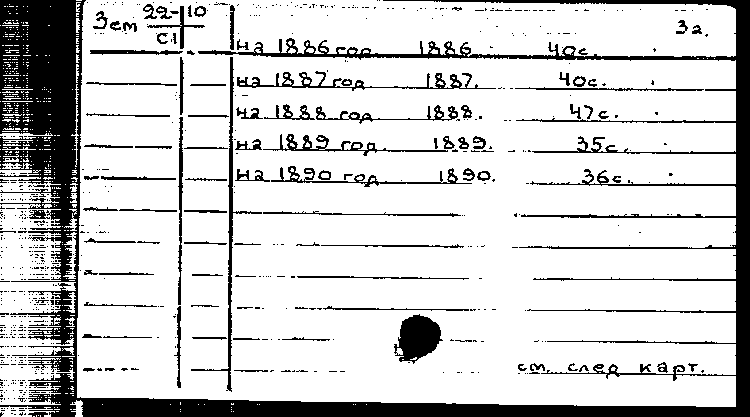 Зем 22-10
С1
3а.
на 1886 год 1886 40с.
на 1887 год 1887. 40с.
на 1888 год 1888. 47с.
на 1889 год. 1889. 35с.
на 1890 год 1890. 36с.
см. след карт.